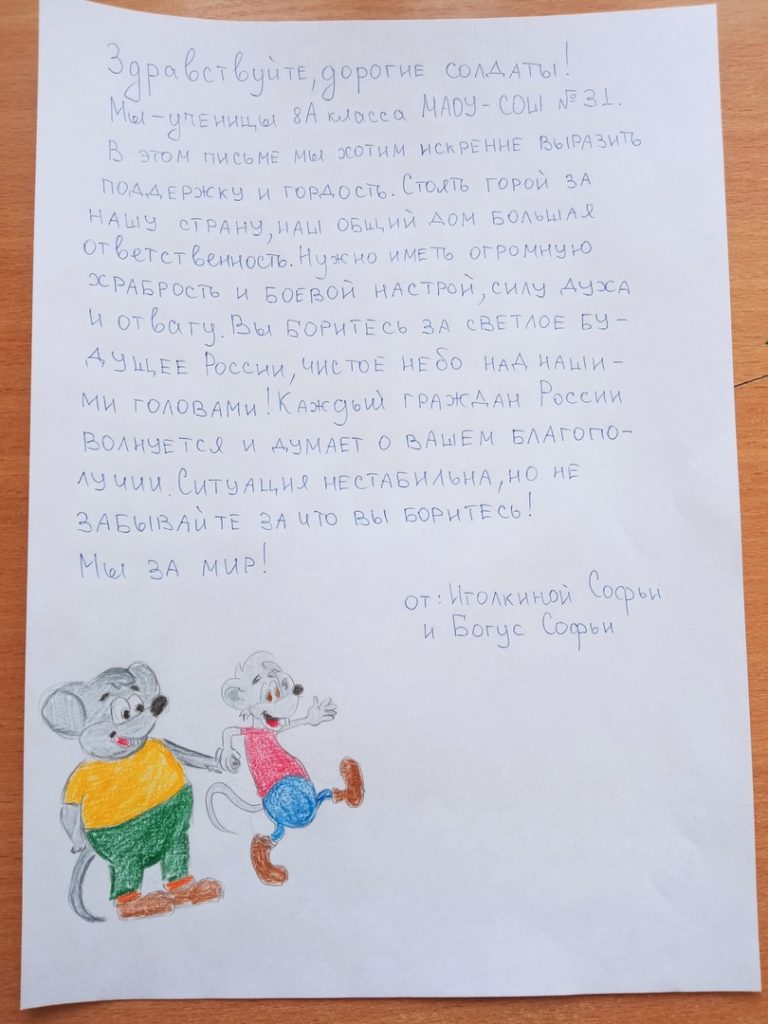 Здравствуйте, дорогие солдаты!
Мы-ученицы 8А класса МАОУ-СОШ №31.
В этом письме мы хотим искренне выразить
поддержку и гордость. Стоять горой за
нашу страну, наш общий дом большая
ответственность. Нужно иметь огромную
храбрость и боевой настрой, силу духа
и отвагу. Вы боритесь за светлое бу-
дущее России, чистое небо над наши-
ми головами! Каждый граждан России
волнуется и думает о вашем благопо-
лучии. Ситуация нестабильна, но не
забывайте за что вы боритесь!
Мы за мир!
от: Иголкиной Софьи
и Богус Софьи